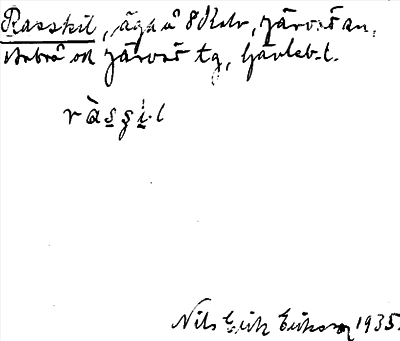 Rasskil, äga å 8 Kbr, Järvsö sn,
Arbrå och Järvsö tg, Gävleb. l.
ràsşi·l
Nils Erik Eriksson 1935.